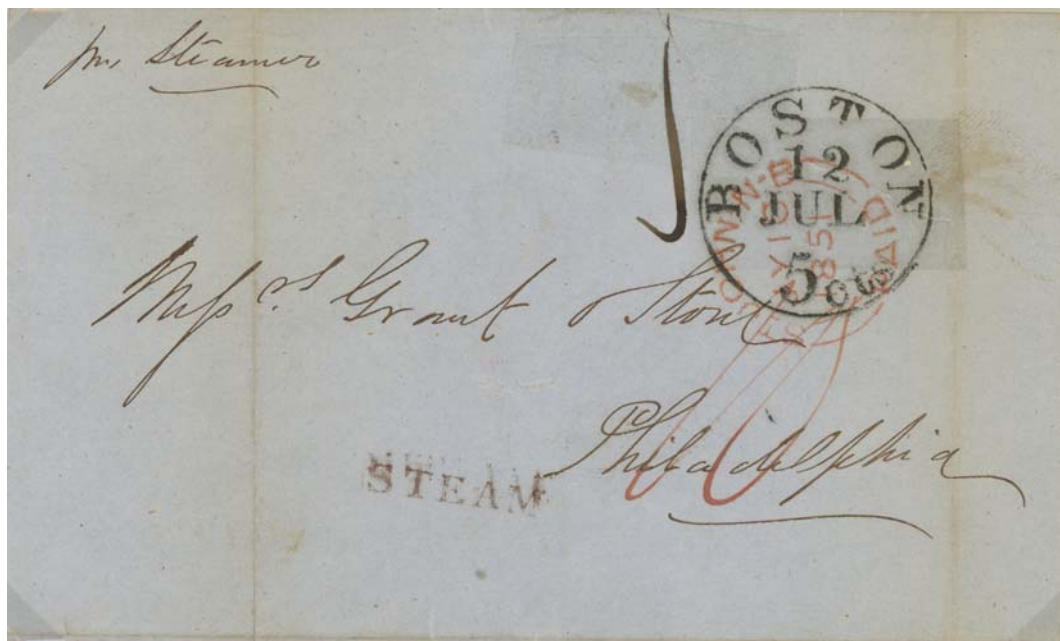 pr Steamer
BOSTON
12
JUL
5cts
PAID
N-B
1851
Messrs Grant & Stone
Philadelphia
STEAM